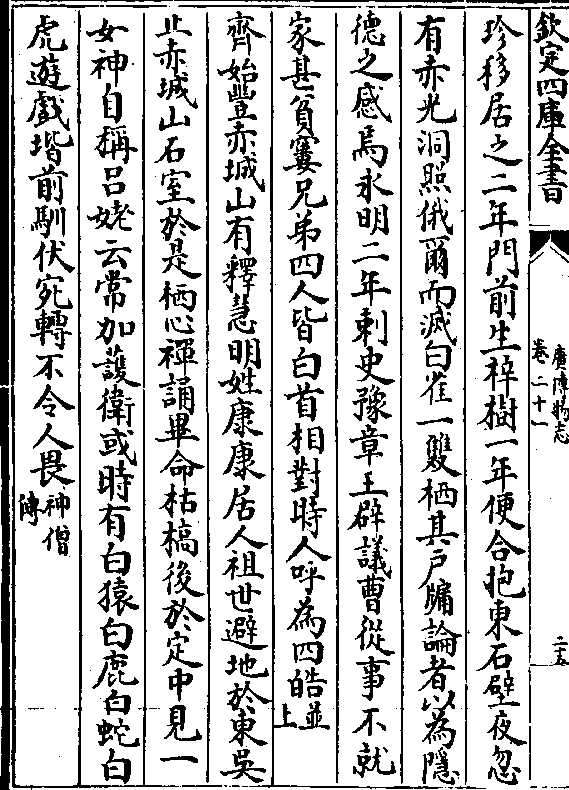 欽定四庫全書
廣博物志
卷二十一
二五
珍移居之二年門前生梓樹一年便合抱東石壁夜忽
有赤光洞照俄爾而滅白雀一雙栖其戸牖論者以為隱
德之感焉永明二年刺史豫章王辟議曹從事不就
家甚貧窶兄弟四人皆白首相對時人呼為四皓並上
齊始豐赤城山有釋慧明姓康康居人祖世避地於東吳
止赤城山石室於是栖心禪誦畢命枯槁後於定中見一
女神自稱吕姥云常加護衛或時有白猿白鹿白蛇白
虎遊戲堦前馴伏宛轉不令人畏神僧傳